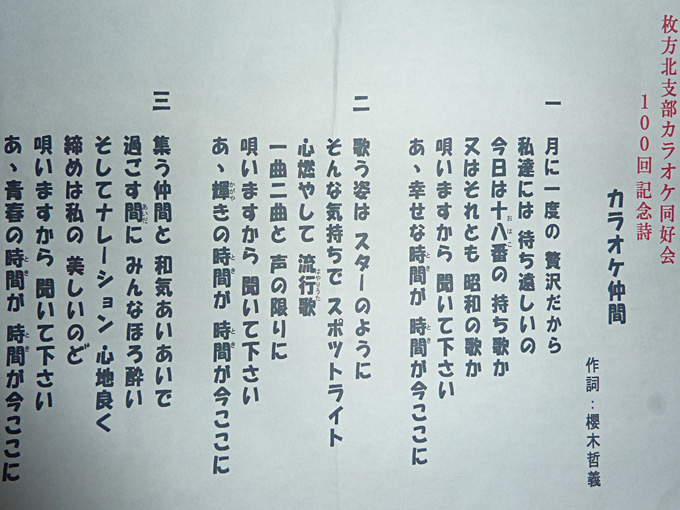 枚方北支部カラオケ同好会
100回記念詩
カラオケ仲間
作詞：櫻木哲義
一 月に一度の 贅沢だから
私達には 待ち遠しいの
今日は十八番の 持ち歌か
おはこ
又はそれとも 昭和の歌か
唄いますから 聞いて下さい
あゝ幸せな時間が 時間が今ここに
とき とき
二 歌う姿は スターのように
そんな気持ちで スポットライト
心燃やして 流行歌
はやりうた
一曲二曲と 声の限りに
唄いますから 聞いて下さい
あゝ輝きの時間が 時間が今ここに
かがや とき とき
三 集う仲間と 和気あいあいで
過ごす間に みんなほろ酔い
あいだ
そしてナレーション 心地良く
締めは私の 美しいのど
唄いますから 聞いて下さい
あゝ青春の時間が 時間が今ここに
とき とき